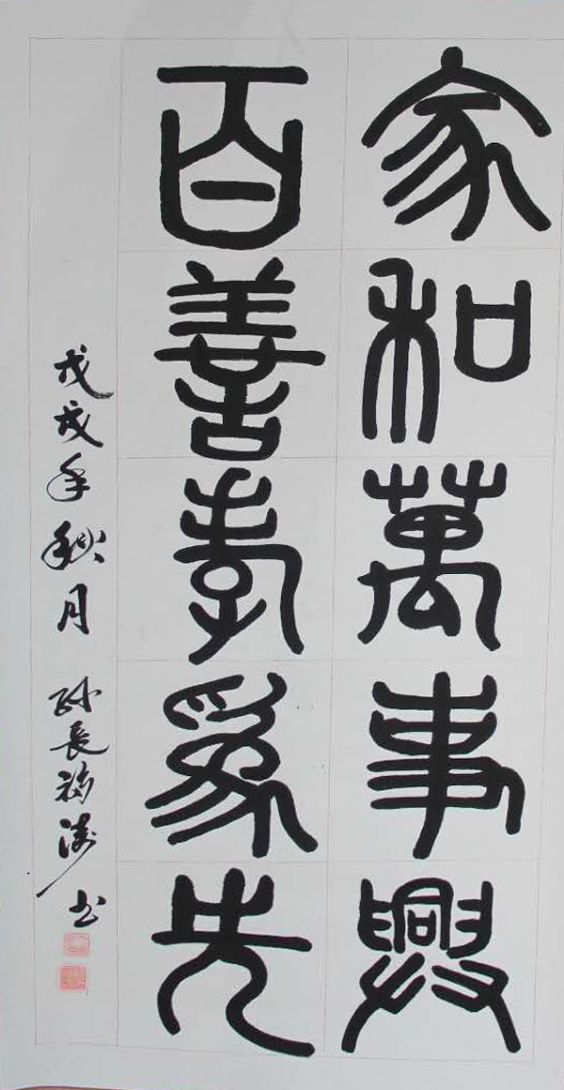 家和萬事興
百善孝為先
戊戌年秋月 孫長福 書